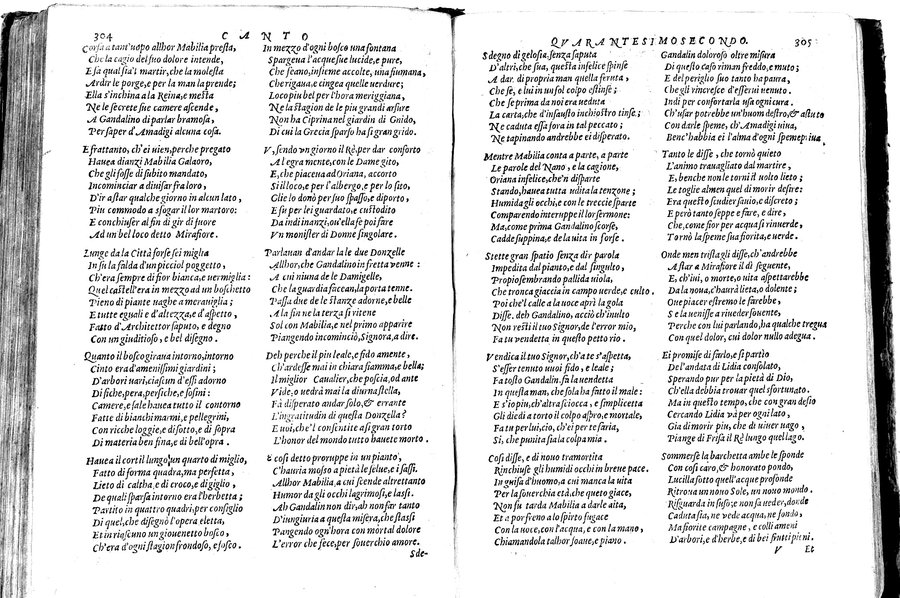 304 CANTO
Corsa a tant'uopo allhor Mabilia presta,
Che la cagio del suo dolore intende,
E sà qual sia'l martir, che la molesta
Ardir le porge, e per la man la prende;
Ella s'inchina a la Reina, e mesta
Ne le secrete sue camere ascende,
A Gandalino di parlar bramosa,
Per saper d'Amadigi alcuna cosa.
E frattanto, ch'ei uien, perche pregato
Hauea dianzi Mabilia Galaoro,
Che gli fosse di subito mandato,
Incominciar a diuisar fra loro,
D'ir a star qualche giorno in alcun lato,
Piu commodo a sfogar il lor martoro:
E conchiuser al fin di gir di fuore
Ad un bel loco detto Mirafiore.
Lunge da la Città forse sei miglia
In sù la falda d'un picciol poggetto,
Ch'era sempre di fior bianca, e uermiglia:
Quel castell'era in mezzo ad un boschetto
Pieno di piante uaghe a merauiglia;
E tutte eguali e d'altezza, e d'aspetto,
Fatto d'Architettor saputo, e degno
Con un giuditioso, e bel disegno.
Quanto il bosco giraua intorno, intorno
Cinto era d'amenissimi giardini;
D'arbori uari, ciascun d'essi adorno
Di fiche, pera, persiche, e susini:
Camere, e sale hauea tutto il contorno
Fatte di bianchi marmi, e pellegrini,
Con ricche loggie, e disotto, e di sopra
Di materia ben fina, e di bell'opra.
Hauea il cortil lungo un quarto di miglio,
Fatto di forma quadra, ma perfetta,
Lieto di caltha, e di croco, e digiglio,
De quali sparsa intorno era l'herbetta;
Partito in quattro quadri, per consiglio
Di quel, che disegnò l'opera eletta,
Et in ciascuno un giouenetto bosco,
Ch'era d'ogni stagion frondoso, e fosco.
In mezzo d'ogni bosco una fontana
Spargeua l'acque sue lucide, e pure,
Che feano, insieme accolte, una fiumana,
Che rigaua, e cingea quelle uerdure;
Loco piu bel per l'hora meriggiana,
Ne la stagion de le piu grandi arsure
Non ha Ciprina nel giardin di Gnido,
Di cui la Grecia sparso ha sì gran grido.
V, sendo un giorno il Rè, per dar conforto
A l'egra mente, con le Dame gito,
E, che piacea ad Oriana, accorto
Si il loco, e per l'albergo, e per lo sito,
Glie lo donò per suo spasso, e diporto,
E fù per lei guardato, e custodito
Da indi inanzi, ou'ella se poi fare
Vn monister di Donne singolare.
Parlauan d'andar là le due Donzelle
Allhor, che Gandalino in fretta uenne:
A cui niuna de le Damigelle,
Che la guardia faccean, la porta tenne.
Passa due de le stanze adorne, e belle
A la fin ne la terza si ritene
Sol con Mabilia, e nel primo apparire
Piangendo incominciò, Signora, a dire.
Deh perche il piu leale, e fido amente,
Ch'ardesse mai in chiara fiamma, e bella;
Il miglior Caualier, che poscia, od ante
Vide, o uedrà mai la diurna stella,
Fà disperato andar solo, & errante
L'ingratitudin di questa Donzella?
E uoi, che'l consentite a sì gran torto
L'honor del mondo tutto hauete morto.
E così detto proruppe in un pianto,
C'hauria mosso a pietà le selue, e i sassi.
Allhor Mabilia, a cui scende altrettanto
Humor da gli occhi lagrimosi, e lassi.
Ah Gandalin non dir, ah non far tanto
D'ingiuria a questa misera, che stassi
Pangendo ogn'hora con mortal dolore
L'error che fece, per souerchio amore.
Sde-
QVARANTESIMOSECONDO. 305
Sdegno di gelosia, senza saputa
D'altri, che sua, questa infelice spinse
A dar di propria man quella feruta,
Che sè, e lui in un sol colpo estinse;
Che se prima da noi era ueduta
La carta, che d'infausto inchiostro tinse;
Ne caduta essa fora in tal peccato;
Ne tapinando andrebbe ei disperato.
Mentre Mabilia conta a parte, a parte
Le parole del Nano, e la cagione,
Oriana infelice, che'n disparte
Stando, hauea tutta udita la tenzone;
Humida gli occhi, e con le treccie sparte
Comparendo interruppe il lor sermone:
Ma, come prima Gandalino scorse,
Cadde suppina, e de la uita in forse.
Stette gran spatio senza dir parola
Impedita dal pianto, e dal singulto,
Propio sembrando pallida uiola,
Che tronca giaccia in campo uerde, e culto.
Poi che'l calle a la uoce aprì la gola
Disse. deh Gandalino, acciò ch'inulto
Non resti il tuo Signor, de l'error mio,
Fa tu vendetta in questo petto rio.
Vendica il tuo Signor, ch'a te s'aspetta,
S'esser tenuto uuoi fido, e leale;
Fa tosto Gandalin, fa la uendetta
In questa man, che sola ha fatto il male:
E s'io piu, ch'altra sciocca, e simplicetta
Gli diedi a torto il colpo aspro, e mortale,
Fa tu per lui, ciò, ch'ei per te faria,
Si, che punita sia la colpa mia.
Così disse, e di nouo tramortita
Rinchiuse gli humidi occhi in breue pace.
In guisa d'huomo, a cui manca la uita
Per la souerchia età, che queto giace,
Non fu tarda Mabilia a darle aita,
Et a por freno a lo spirto fugace
Con la uoce, con l'acqua, e con la mano,
Chiamandola talhor soaue, e piano.
Gandalin doloroso oltre misura
Di questo caso riman freddo, e muto;
E del periglio suo tanto ha paura,
Che gli vincresce d'esserui uenuto.
Indi per confortarla usa ogni cura.
Ch'usar potrebbe un'huom destro, & astuto
Con darle speme, ch'Amadigi uiua,
Benc'habbia ei l'alma d'ogni speme priua
Tanto le disse, che tornò quieto
L'animo trauagliato dal martire,
E, benche non le torni il uolto lieto;
Le toglie almen quel di morir desire:
Era questo scudier sauio, e discreto;
E però tanto seppe e fare, e dire,
Che, come fior per acqua si rinuerde,
Tornò la speme sua fiorita, e uerde.
Onde men trista gli disse, ch'andrebbe
A star a Mirafiore il dì seguente,
E, ch'iui, o morte, o uita aspettarebbe
Da la noua, c'haurà lieta, o dolente;
Que piacer estremo le sarebbe,
S e la uenisse a riueder souente,
Perche con lui parlando, ha qualche tregua
Con quel dolor, cui dolor nullo adegua.
Ei promise di farlo, e si partìo
De l'andata di Lidia consolato,
Sperando pur per la pietà di Dio,
Ch'ella debbia trouar quel sfortunato.
Ma in questo tempo, che con gran desio
Cercando Lidia và per ogni lato,
Gia di morir piu, che di uiuer uago,
Piange di Frisa il Rè lungo quel lago.
Sommerse la barchetta ambe le sponde
Con così caro, & honorato pondo,
Lucilla sotto quell'acque profonde
Ritroua un nouo Sole, un nouo mondo.
Risguarda in suso; e non sa ueder, donde
Caduta sia, ne vede acqua, ne fondo,
Ma fiorite campagne, e colli ameni
D'arbori, e d'herbe, e di bei frutti pieni.
V Et